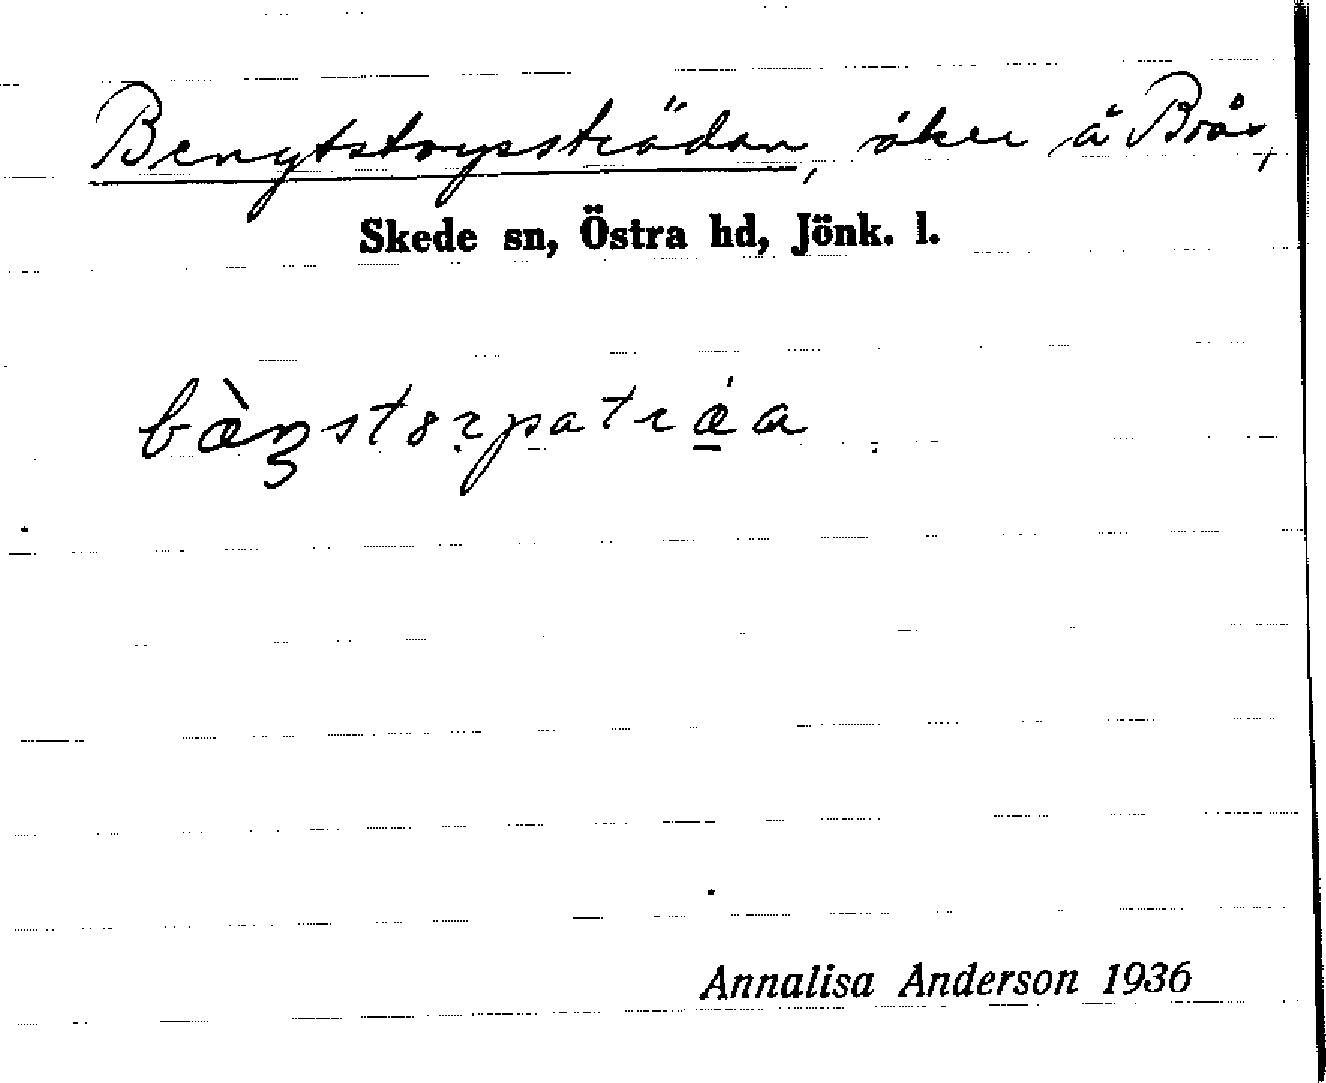 Bengtstorpsträdan, åker å Brås,
Skede sn, Östra hd, Jönk. l.
Annalisa Anderson 1936